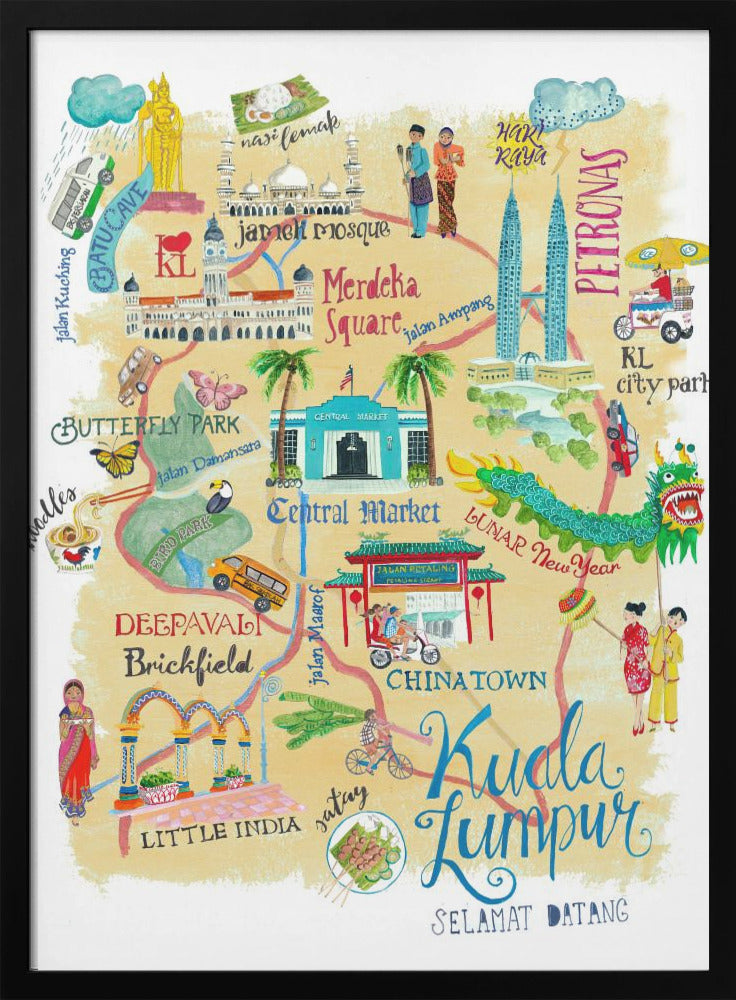 nasi lemak
HARI
RAYA
PETRONAS
BATU CAVE
I
KL
Jameh mosque
Jalan Kuching
Merdeka
Square
Jalan Ampang
KL
city park
CENTRAL MARKET
BUTTERFLY PARK
Jalan Damansara
noodles
Central Market
LUNAR New Year
BIRD PARK
JALAN PETALING
PETALING STREET
DEEPAVALI
Brickfield
Jalan Maarof
CHINATOWN
Kuala
Lumpur
LITTLE INDIA
satay
SELAMAT DATANG